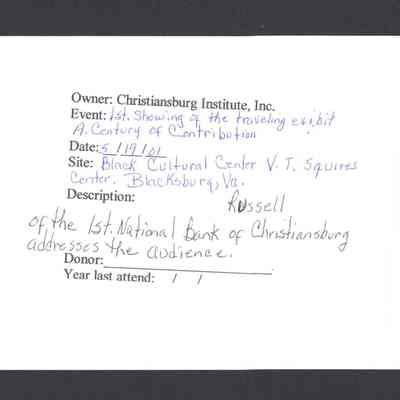 Owner: Christiansburg Institute, Inc.
Event: 1st. Showing of the traveling exibit
A. Century of Contribution
Date: 5 / 19 / 01
Site: Black Cultural Center V. T. Squires
Center. Blacksburg, Va.
Description:
Russell
of the 1st. National Bank of Christiansburg
addresses the audience.
Donor:
Year last attend: / /